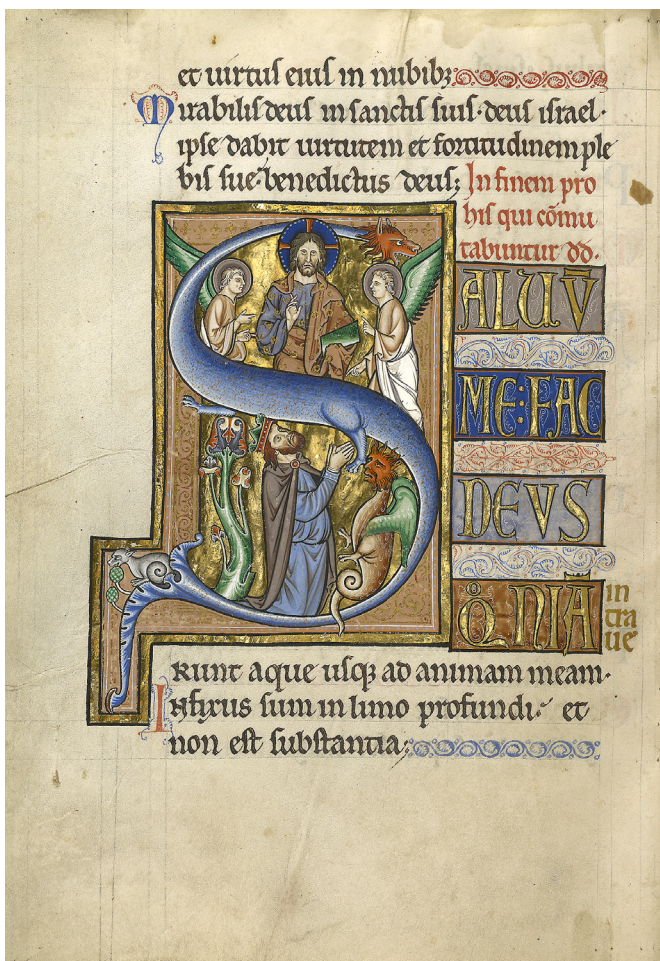 et uirtus eius in nubibꝫ
Mirabilis deus in sanctis suis· deus israel·
ipse dabit uirtutem et fortitudinem ple
bis sue· benedictus deus; In finem pro
his qui cōmu
tabuntur dd̄.
SALUV̄
ME:FAC
DEVS
Q̊NIĀ in
tra
ue
runt aque usqꝫ ad animam meam·
Infixus sum in limo profundi· et
non est substantia;